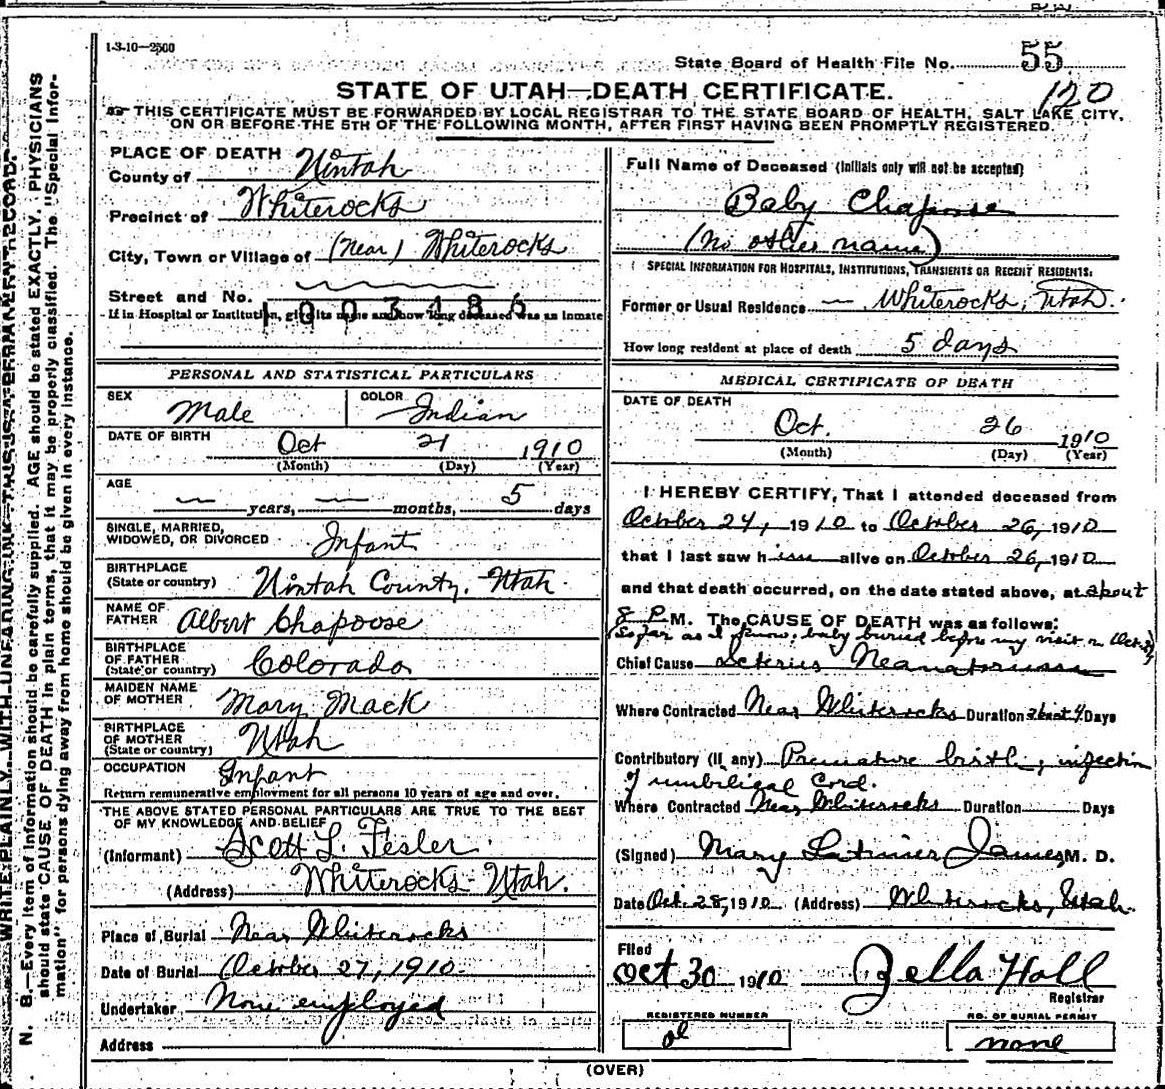 1-3-10—2500
State Board of Health File No. 55
120
STATE OF UTAH—DEATH CERTIFICATE.
THIS CERTIFICATE MUST BE FORWARDED BY LOCAL REGISTRAR TO THE STATE BOARD OF HEALTH, SALT LAKE CITY,
ON OR BEFORE THE 5TH OF THE FOLLOWING MONTH, AFTER FIRST HAVING BEEN PROMPTLY REGISTERED.
WRITE PLAINLY, WITH UNFADING INK—THIS IS A PERMANENT RECORD.
N. B.—Every item of information should be carefully supplied. AGE should be stated EXACTLY. PHYSICIANS
should state CAUSE OF DEATH in plain terms, that it may be properly classified. The "Special Infor-
mation" for persons dying away from home should be given in every instance.
PLACE OF DEATH
County of Uintah
Precinct of Whiterocks
City, Town or Village of (near) Whiterocks
Street and No.
1003186
If in Hospital or Institution, give its name and how long deceased was an inmate
PERSONAL AND STATISTICAL PARTICULARS
SEX Male COLOR Indian
DATE OF BIRTH Oct 21 1910
(Month) (Day) (Year)
AGE — years, — months, 5 days
SINGLE, MARRIED,
WIDOWED, OR DIVORCED Infant
BIRTHPLACE
(State or country) Uintah County, Utah
NAME OF
FATHER Albert Chapoose
BIRTHPLACE
OF FATHER
(State or country) Colorado
MAIDEN NAME
OF MOTHER Mary Mack
BIRTHPLACE
OF MOTHER
(State or country) Utah
OCCUPATION Infant
Return remunerative employment for all persons 10 years of age and over.
THE ABOVE STATED PERSONAL PARTICULARS ARE TRUE TO THE BEST
OF MY KNOWLEDGE AND BELIEF
(Informant) Scott L. Fesler
(Address) Whiterocks Utah.
Place of Burial Near Whiterocks
Date of Burial October 27, 1910
Undertaker None employed
Address
Full Name of Deceased (Initials only will not be accepted)
Baby Chapoose
(No other name)
SPECIAL INFORMATION FOR HOSPITALS, INSTITUTIONS, TRANSIENTS OR RECENT RESIDENTS:
Former or Usual Residence — Whiterocks, Utah.
How long resident at place of death 5 days
MEDICAL CERTIFICATE OF DEATH
DATE OF DEATH
Oct. 26 1910
(Month) (Day) (Year)
I HEREBY CERTIFY, That I attended deceased from
October 24, 1910 to October 26, 1910
that I last saw him alive on October 26, 1910
and that death occurred, on the date stated above, at about
8 P.M. The CAUSE OF DEATH was as follows:
So far as I know, baby buried before my visit on Oct. 27
Chief Cause Icterus Neonatorum
Where Contracted Near Whiterocks Duration about 4 Days
Contributory (if any) Premature birth, infection
of umbilical cord.
Where Contracted Near Whiterocks Duration Days
(Signed) Mary Latimer James, M. D.
Date Oct. 28, 1910 (Address) Whiterocks, Utah.
Filed
Oct 30 1910 Zella Hall
Registrar
REGISTERED NUMBER
NO. OF BURIAL PERMIT
none
(OVER)